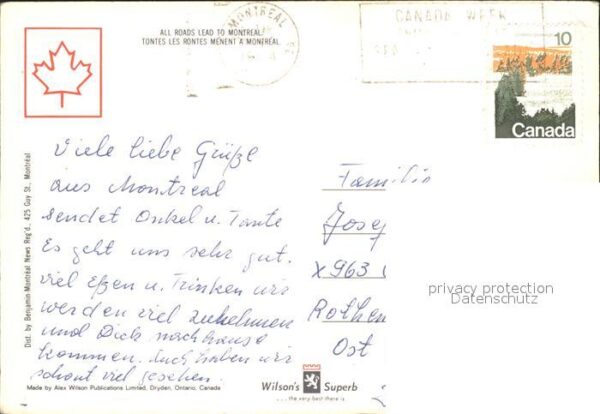 ALL ROADS LEAD TO MONTREAL
TONTES LES RONTES MÈNENT A MONTREAL
MONTREAL
CANADA WEEK
10
Canada
Viele liebe Grüße
aus Montreal
sendet Onkel u. Tante
Es geht uns sehr gut.
viel Eßen u. Trinken wir
werden viel zunehmen
und Dick nachhause
kommen. Auch haben wir
schont viel gesehen.
Familie
Josef
X963
Rothen
Ost
privacy protection
Datenschutz
Dist. by Benjamin Montréal News Reg'd., 425 Guy St., Montréal
Made by Alex Wilson Publications Limited, Dryden, Ontario, Canada
Wilson's Superb
... the very best there is.